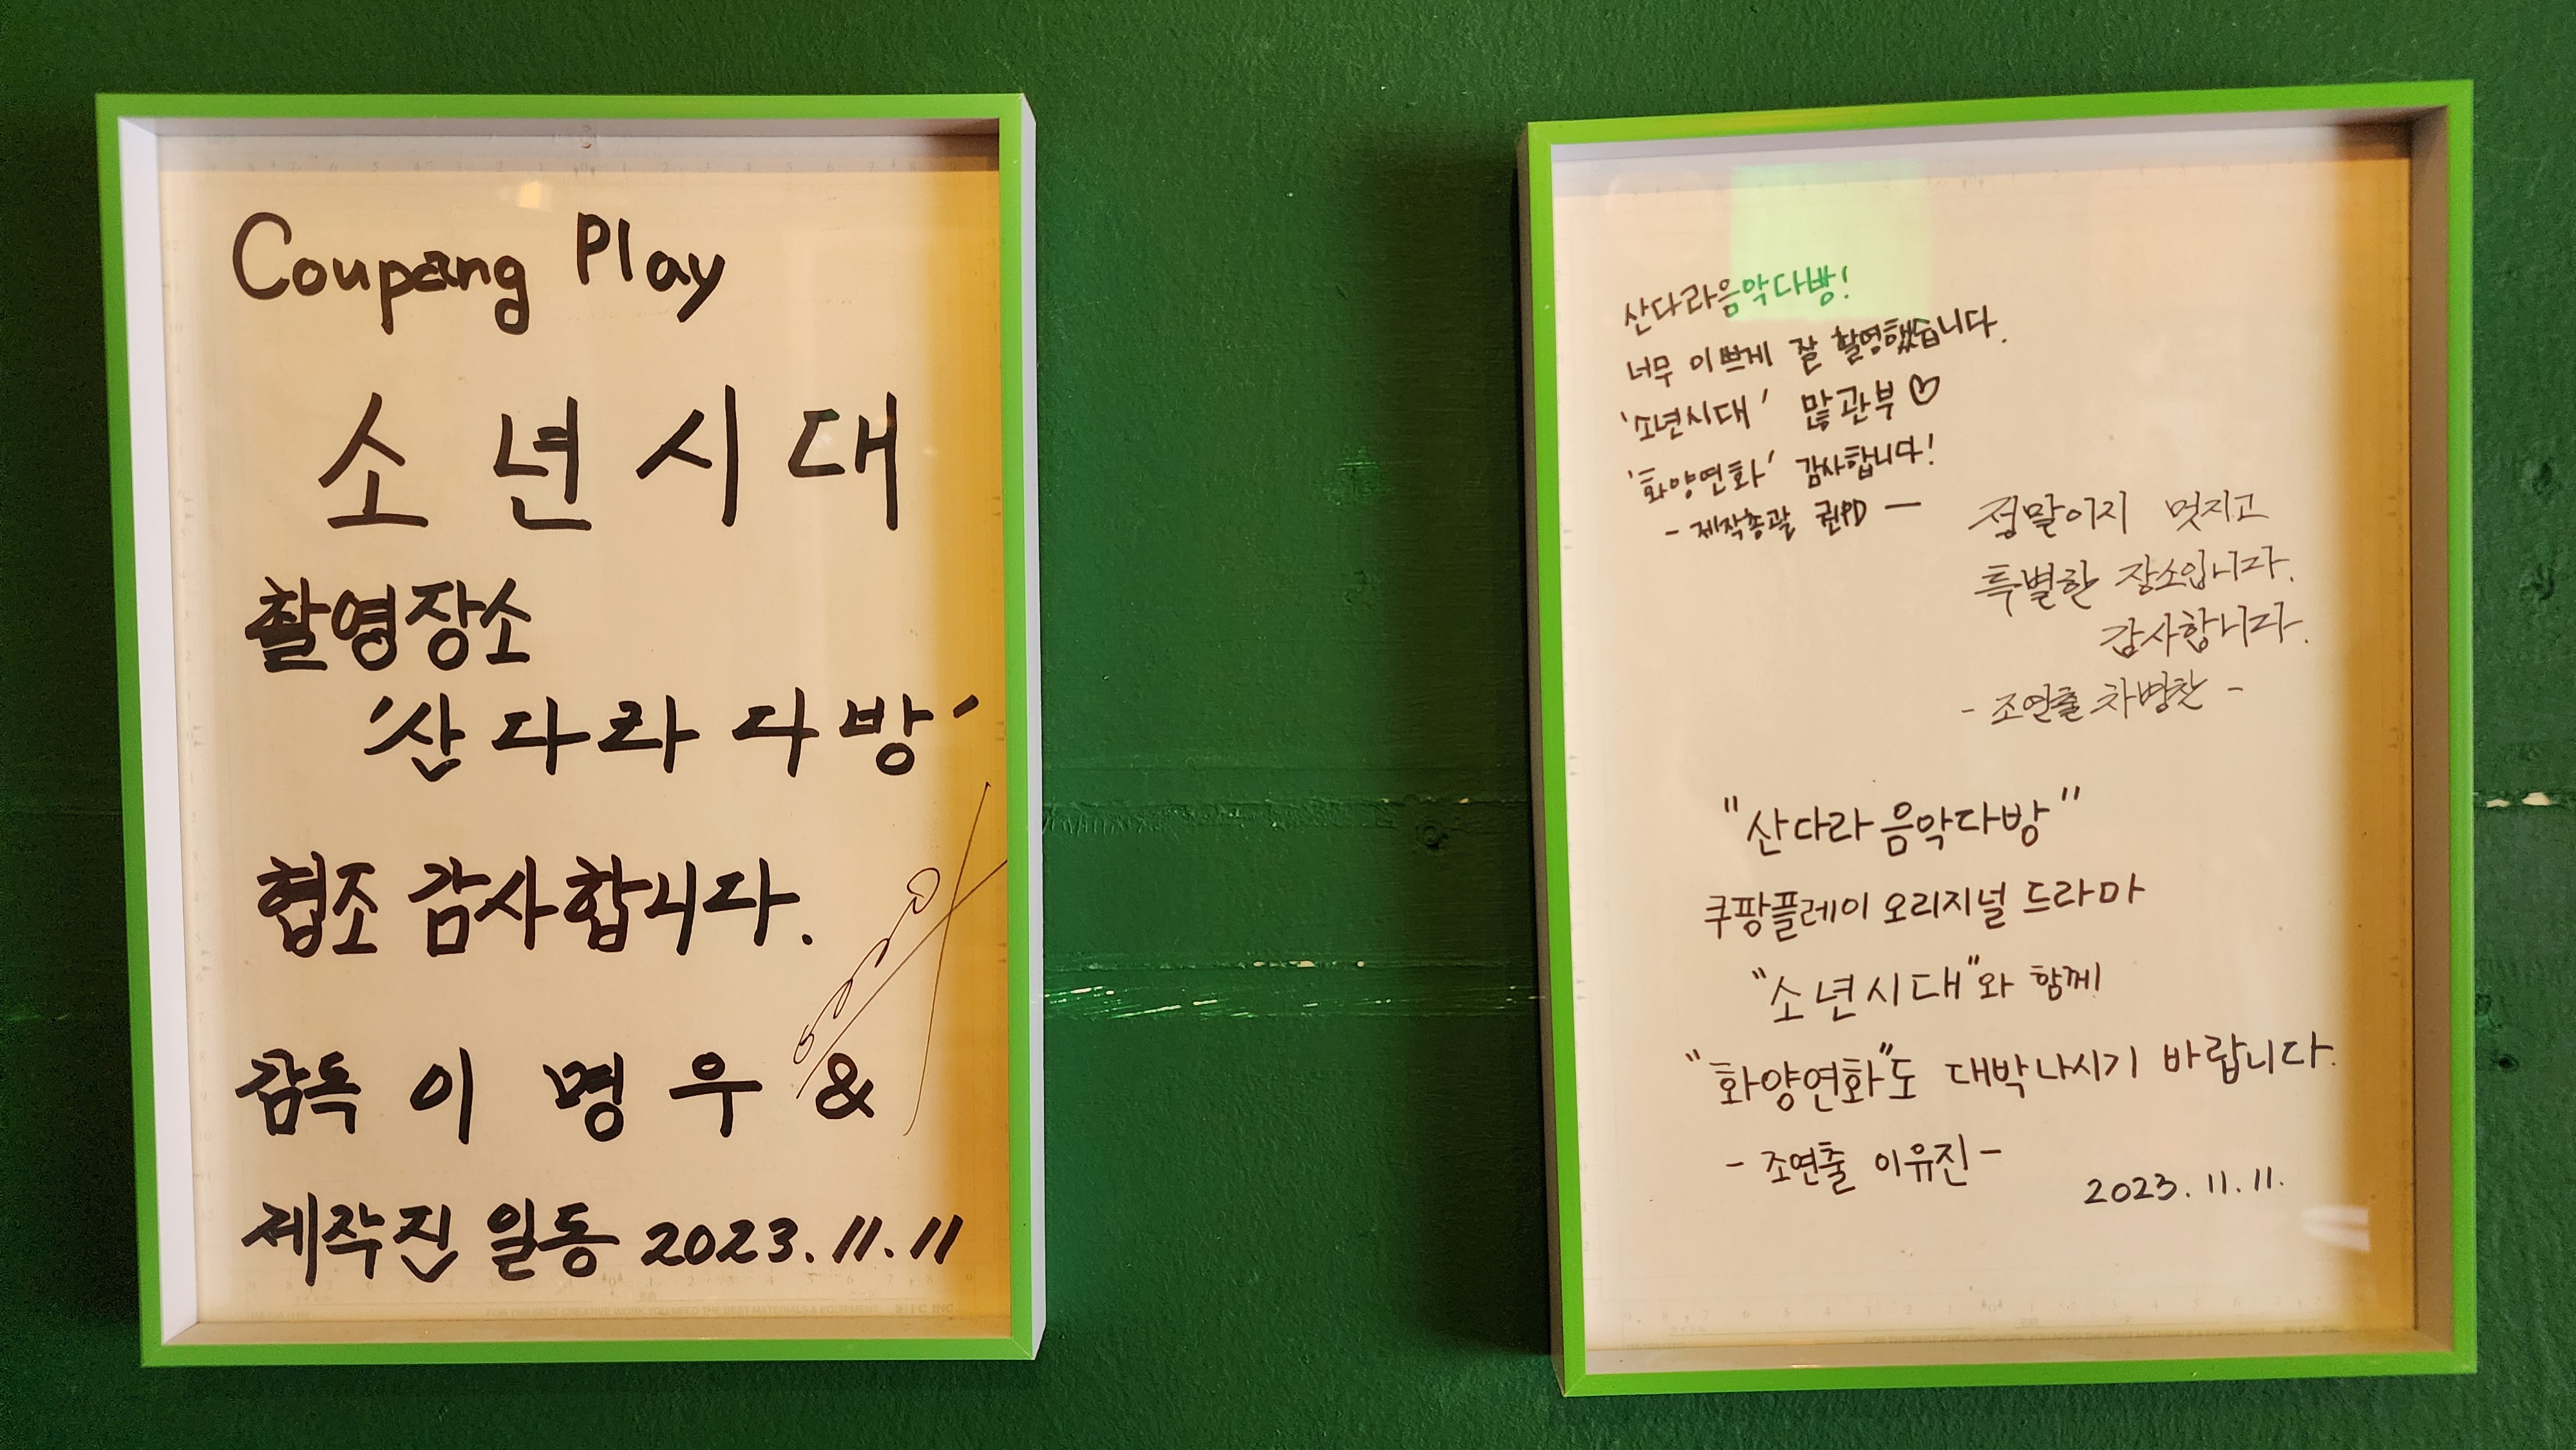 Coupang Play
소년시대
촬영장소
'산다라다방'
협조 감사합니다.
감독 이 명 우 &
제작진 일동 2023.11.11
산다라음악다방!
너무 이쁘게 잘 촬영했습니다.
'소년시대' 많관부♡
'화양연화' 감사합니다!
- 제작총괄 권PD -
정말이지 멋지고
특별한 장소입니다.
감사합니다.
- 조연출 차병찬 -
"산다라음악다방"
쿠팡플레이 오리지널 드라마
"소년시대"와 함께
"화양연화"도 대박나시기 바랍니다.
- 조연출 이유진 -
2023.11.11.